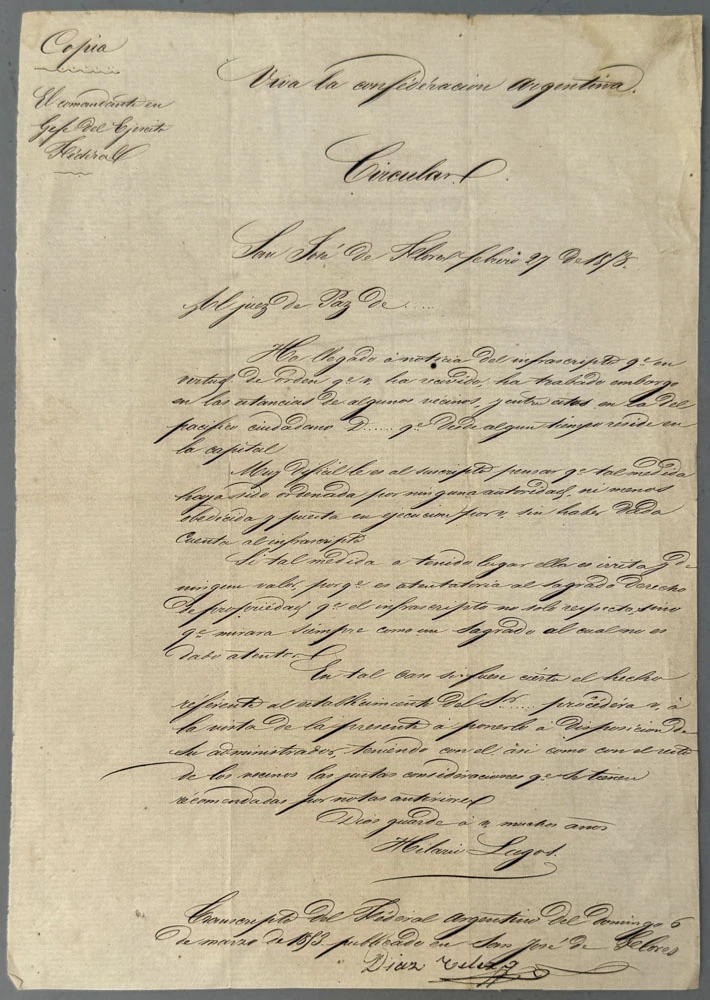 Copia
El comandante en
Gefe del Ejercito
Federal
Viva la confederacion Argentina.
Circular.
San José de Flores febrero 27 de 1853.
Al juez de Paz de .....
Ha llegado á noticia del infrascripto qe en
virtud de orden qe v. ha recivido, ha trabado embargo
en las estancias de algunos vecinos, y entre estos en la del
pacifico ciudadano D...... qe desde algun tiempo reside en
la capital
Muy dificil le es al suscripto pensar qe tal medida
haya sido ordenada por ninguna autoridad, ni menos
obedecida y puesta en ejecucion por v. sin haber dado
cuenta al infrascripto
Si tal medida a tenido lugar ella es irrita y de
ningun valor, porqe es atentatoria al sagrado derecho
de propiedad, qe el infrascripto no solo respecta, sino
qe mirara siempre como un sagrado al cual no es
dado atentar
En tal caso si fuese cierto el hecho
referente al establecimiento del Sr..... procedera v. á
la vista de la presente a ponerlo á disposicion de
su administrador, teniendo con el, asi como con el resto
de los vecinos las justas consideraciones qe se tienen
recomendadas por notas anteriores
Dios guarde á v. muchos años
Hilario Lagos.
Transcripto del Federal Argentino del domingo 6
de marzo de 1853. publicado en San José de Flores
Diaz Velez